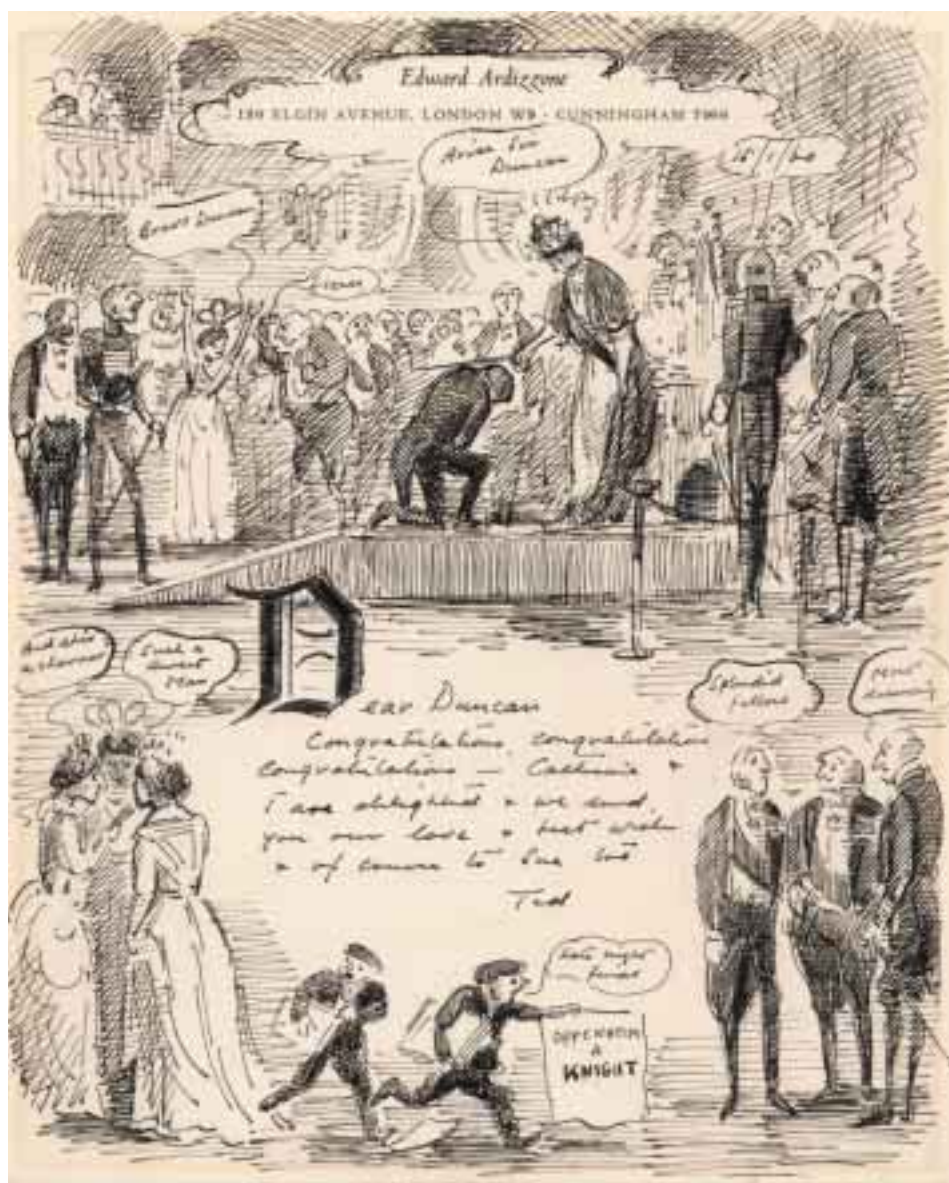 Edward Ardizzone
130 ELGIN AVENUE, LONDON W9 - CUNNINGHAM
Arise Sir
Duncan
15/1/60
Duncan
And also
Such a
Man
Splendid
fellow
Dear Duncan
Congratulations, congratulations
congratulations — Catherine &
I are delighted & we send
you our love & best wishes
& of course to Sue too
Ted
Late night
OPPENHEIM
A
KNIGHT